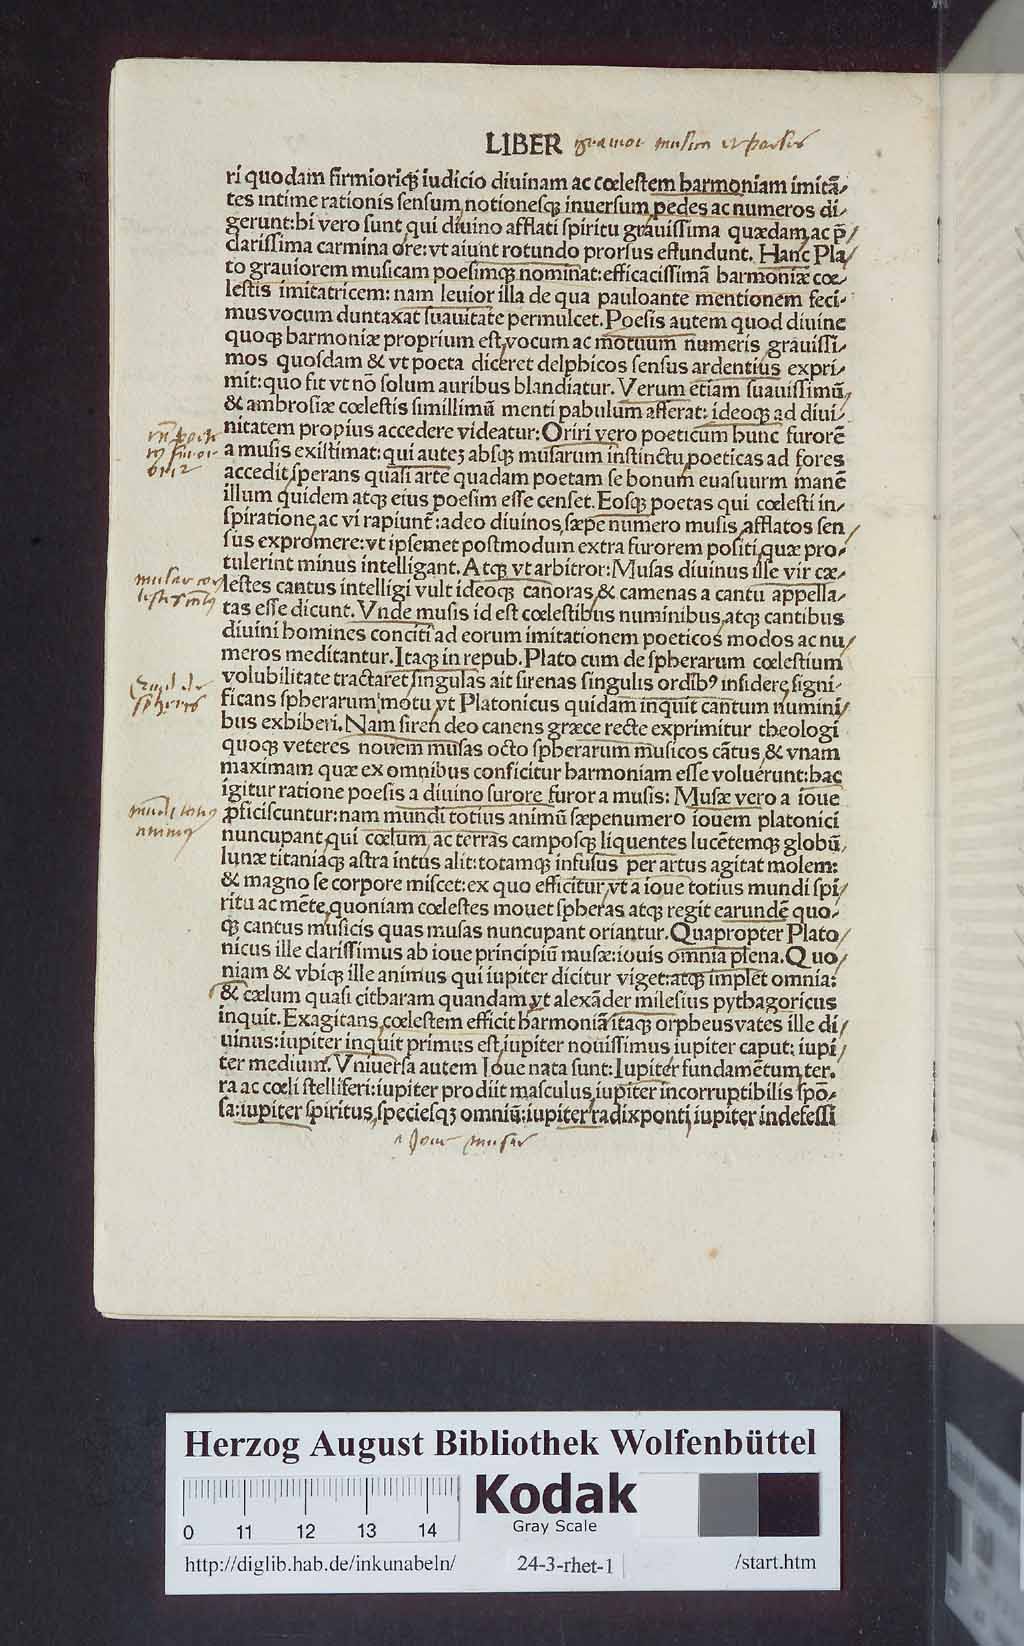 LIBER
ri quodam firmioriq₃ iudicio diuinam ac cœlestem harmoniam imitā-
tes intime rationis sensum notionesq₃ in uersum pedes ac numeros di-
gerunt: hi vero sunt qui diuino afflati spiritu grauissima quædam ac p̄
clarissima carmina ore: vt aiunt rotundo prorsus effundunt. Hanc Pla
to grauiorem musicam poesimq₃ nominat: efficacissimā harmoniæ cœ-
lestis imitatricem: nam leuior illa de qua pauloante mentionem feci-
mus vocum duntaxat suauitate permulcet. Poesis autem quod diuine
quoq₃ harmoniæ proprium est, vocum ac motuum numeris grauissi-
mos quosdam & vt poeta diceret delphicos sensus ardentius expri-
mit: quo fit vt nō solum auribus blandiatur. Verum etiam suauissimū
& ambrosiæ cœlestis simillimū menti pabulum afferat: ideoq₃ ad diui-
nitatem propius accedere videatur: Oriri vero poeticum hunc furorē
a musis existimat: qui autē absq₃ musarum instinctu poeticas ad fores
accedit, sperans quasi arte quadam poetam se bonum euasuurm inanē
illum quidem atq₃ eius poesim esse censet. Eosq₃ poetas qui cœlesti in-
spiratione, ac vi rapiunt̄: adeo diuinos, sæpe numero musis afflatos sen
sus expromere: vt ipsemet postmodum extra furorem positi, quæ pro-
tulerint minus intelligant. Atq₃ vt arbitror: Musas diuinus ille vir cæ-
lestes cantus intelligi vult ideoq₃ canoras, & camenas a cantu appella-
tas esse dicunt. Vnde musis id est cœlestibus numinibus, atq₃ cantibus
diuini homines conciti ad eorum imitationem poeticos modos ac nu
meros meditantur. Itaq₃ in repub. Plato cum de spherarum cœlestium
volubilitate tractaret, singulas ait sirenas singulis ordībꝰ insidere, signi-
ficans spherarum motu vt Platonicus quidam inquit cantum numini
bus exhiberi. Nam siren deo canens græce recte exprimitur theologi
quoq₃ veteres nouem musas octo spherarum musicos cātus, & vnam
maximam quæ ex omnibus conficitur harmoniam esse voluerunt: hac
igitur ratione poesis a diuino furore furor a musis: Musæ vero a ioue
ꝓficiscuntur: nam mundi totius animū sæpenumero iouem platonici
nuncupant, qui cœlum, ac terras camposq₃ liquentes lucētemq₃ globū,
lunæ titaniaq₃ astra intus alit: totamq₃ infusus per artus agitat molem:
& magno se corpore miscet: ex quo efficitur, vt a ioue totius mundi spi
ritu ac mēte, quoniam cœlestes mouet spheras atq₃ regit earundē quo-
q₃ cantus musicis quas musas nuncupant oriantur. Quapropter Plato
nicus ille clarissimus ab ioue principiū musæ: iouis omnia plena. Quo
niam & vbiq₃ ille animus qui iupiter dicitur viget: atq₃ implet omnia:
& cælum quasi citharam quandam vt alexāder milesius pythagoricus
inquit. Exagitans, cœlestem efficit harmoniā itaq₃ orpheus vates ille di
uinus: iupiter inquit primus est, iupiter nouissimus iupiter caput: iupi
ter medium. Vniuersa autem Ioue nata sunt: Iupiter fundamētum, ter.
ra ac cœli stelliferi: iupiter prodiit masculus, iupiter incorruptibilis spō-
sa: iupiter spiritus, speciesq₃ omniū: iupiter radix ponti, iupiter indefessi
a Ioue musae
Herzog August Bibliothek Wolfenbüttel
Kodak
Gray Scale
0 11 12 13 14
http://diglib.hab.de/inkunabeln/ 24-3-rhet-1 /start.htm